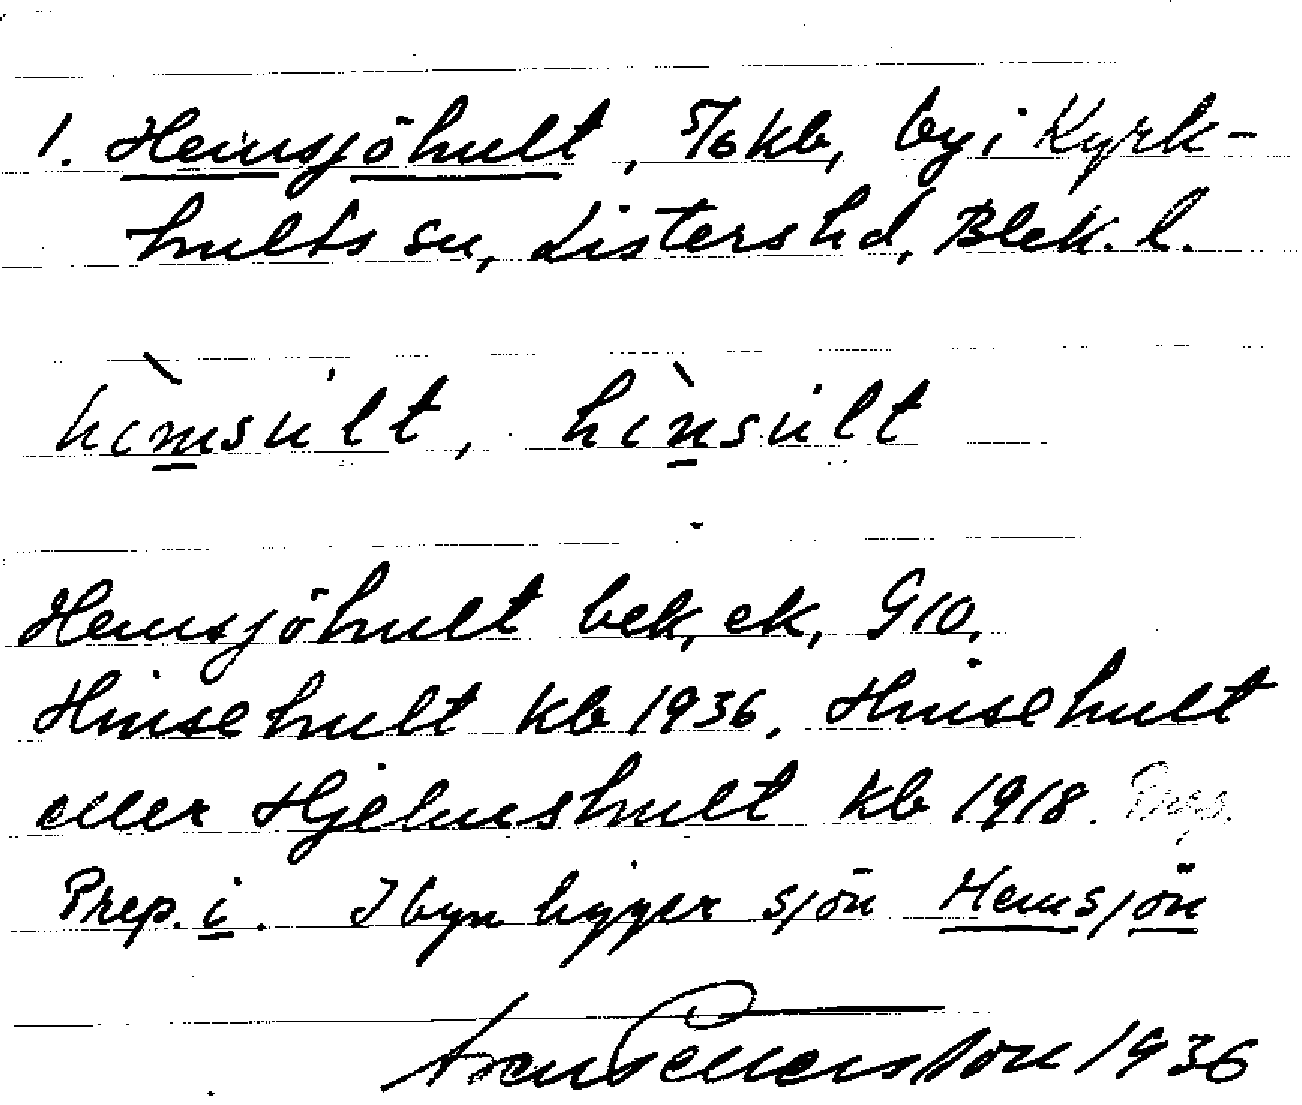 1. Hemsjöhult, 5/6 kb, by i Kyrk-
hults sn, Listers hd, Blek. l.
hìmsult, hìnsult
Hemsjöhult bek, ek, G10,
Hinsehult kb 1936, Hinsehult
eller Hjelmshult kb 1918. Prep.
Prep. i. I byn ligger sjön Hemsjön
Sven Pettersson 1936